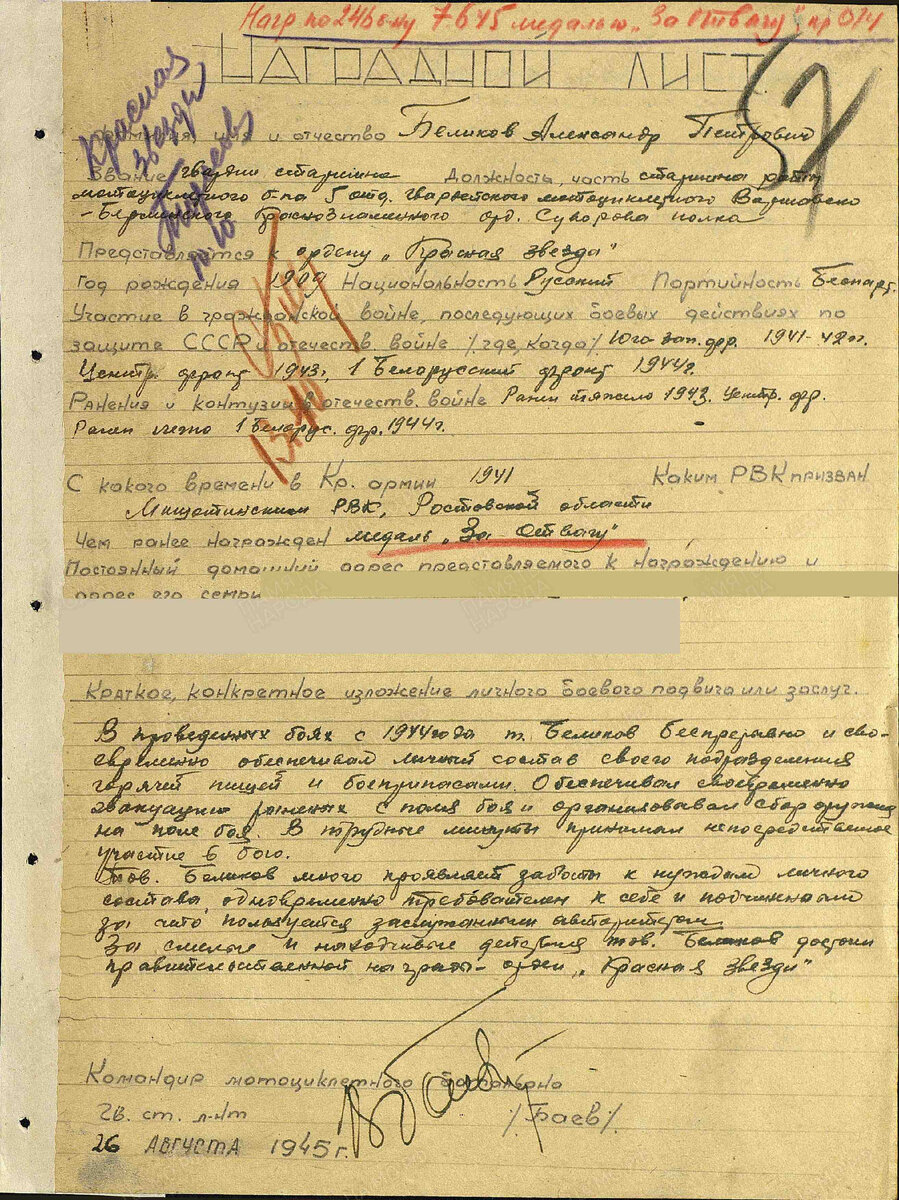 Нагр по 246 ему 7-645 медалью „За отвагу" пр 014
НАГРАДНОЙ ЛИСТ
57
Красная
звезда
Фамилия, имя и отчество Беликов Александр Петрович
Звание гвардии старшина Должность, часть старшина роты
мотоциклетного б-на 5 отд. гвардейского мотоциклетного Варшавско
-Берлинского Краснознаменного орд. Суворова полка
Представляется к ордену „Красная звезда"
Год рождения 1909 Национальность Русский Партийность Беспарт.
Участие в гражданской войне, последующих боевых действиях по
защите СССР и отечеств войне /где, когда/ Юго зап. фр. 1941-42 гг.
Центр. фронт 1943г, 1 Белорусский фронт 1944г.
Ранения и контузии в отечеств. войне Ранен тяжело 1943. Центр. фр.
Ранен легко 1 Белорус. фр. 1944г.
С какого времени в Кр. армии 1941 Каким РВК призван
РВК, Ростовской области
Чем ранее награжден медаль „За Отвагу"
Постоянный домашний адрес представляемого к награждению и
адрес его семьи
Краткое, конкретное изложение личного боевого подвига или заслуг.
В проведенных боях с 1944 года т. Беликов беспрерывно и сво-
евременно обеспечивал личный состав своего подразделения
горячей пищей и боеприпасами. Обеспечивал своевременно
эвакуацию раненых с поля боя и организовывал сбор оружия
на поле боя. В трудные минуты принимал непосредственное
участие в бою.
Тов. Беликов много проявляет заботы к нуждам личного
состава, одновременно требователен к себе и подчиненным
за что пользуется заслуженным авторитетом
За смелые и находчивые действия тов. Беликов достоин
правительственной награды - орден „Красная звезда"
Командир мотоциклетного батальона
Гв. ст. л-нт /Баев/
26 АВГУСТА 1945г.